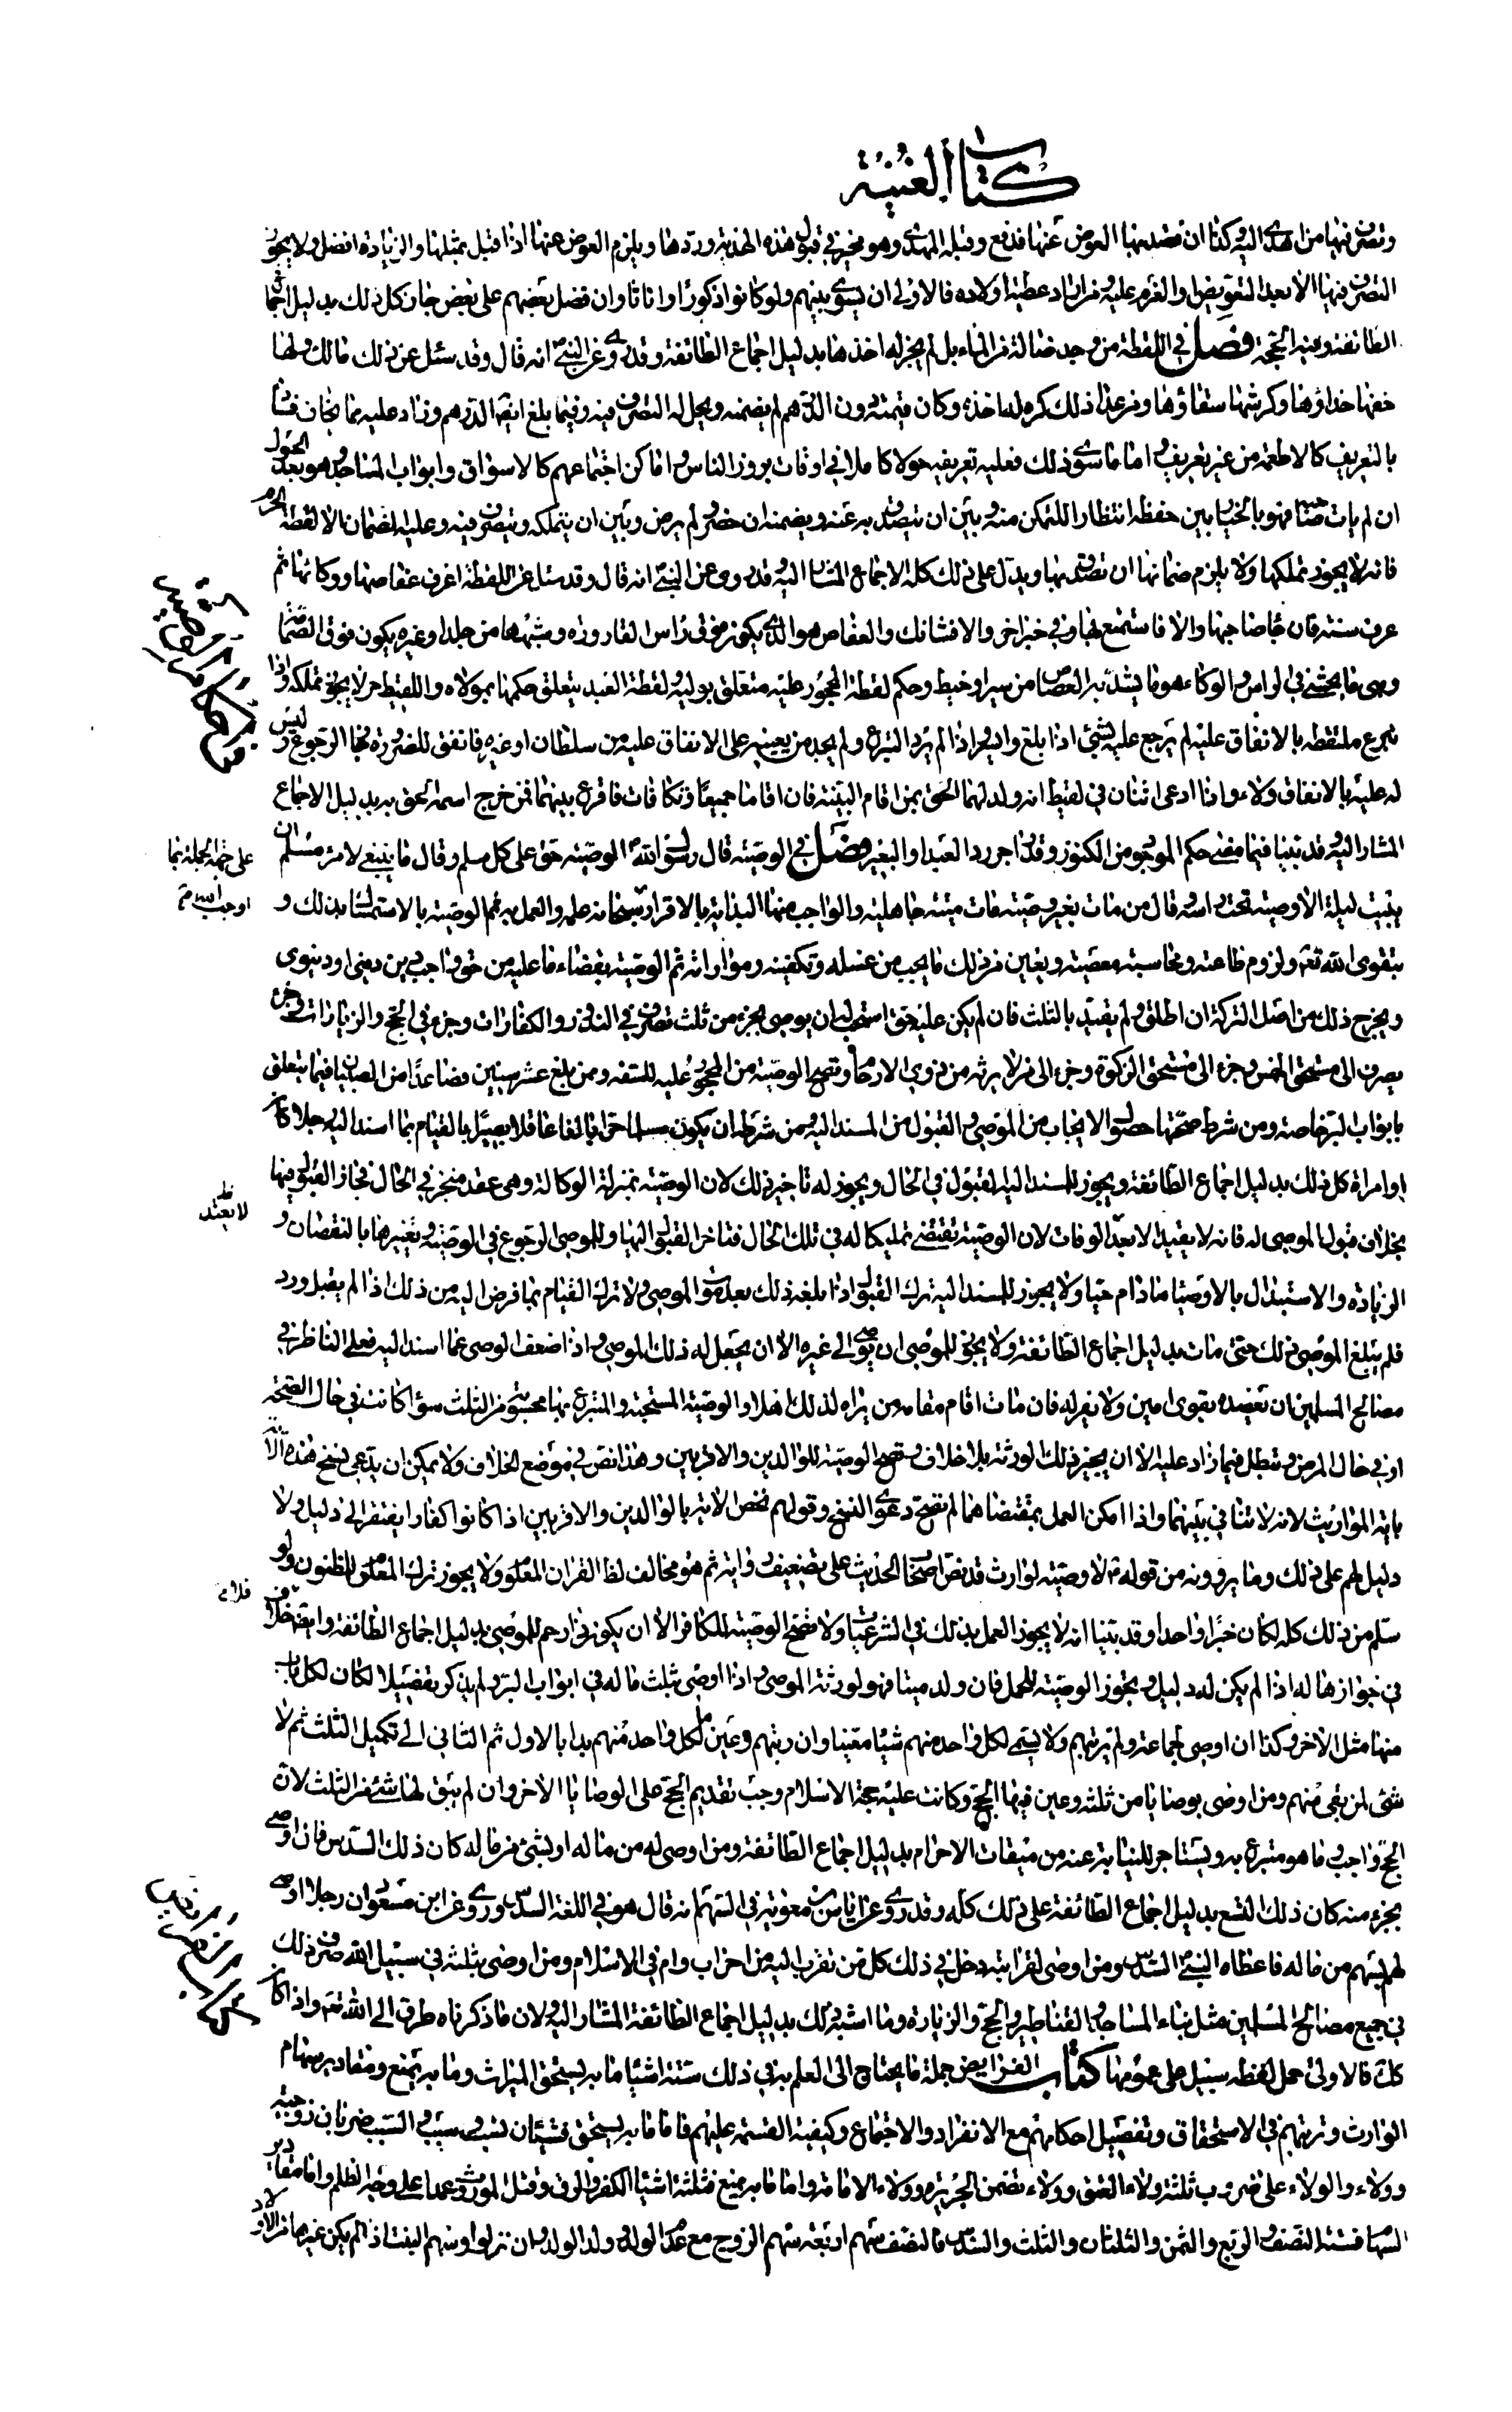 كتاب الغنية
وتصرف فيها من اهدى اليه وكذا ان قصد بها العوض عنها فدفع وقبله المهدى وهو مخير في قبول هذه الهدية وردها ويلزم العوض عنها اذا قبل بمثلها والزيادة افضل ولا يجوز
التصرف فيها الا بعد التعويض او العزم عليه ومن اراد عطية اولاده فالاولى ان يسوى بينهم ولو كانوا ذكورا واناثا وان فضل بعضهم على بعض جاز كل ذلك بدليل اجماع
الطائفة وفيه الحجة فصل في اللقطة من وجد ضالة من الابل لم يجز له اخذها بدليل اجماع الطائفة وقد روى عن النبي انه قال وقد سئل عن ذلك مالك ولها
خفها حذاؤها وكرشها سقاؤها ومن عدا ذلك كره له اخذه وكان قيمته دون الدرهم لم يضمنه ويحل له التصرف فيه وفيما بلغ ايضا الدرهم وزاد عليه مما يخاف فساده
بالتعريف كالاطعمة من غير تعريف واما ما سوى ذلك فعليه تعريفه حولا كاملا في اوقات بروز الناس واماكن اجتماعهم كالاسواق وابواب المساجد وهو بعد الحول
ان لم يات صاحبها فهو بالخيار بين حفظه انتظارا للتمكن منه وبين ان يتصدق به عنه ويضمنه ان حضر ولم يرض وبين ان يتملكه ويتصرف فيه وعليه الضمان الا لقطة الحرم
فانه لا يجوز تملكها ولا يلزم ضمانها ان تصدق بها ويدل على ذلك كله الاجماع المشار اليه وقد روى عن النبي انه قال وقد سئل عن اللقطة اعرف عفاصها ووكائها ثم
عرف سنة فان جاء صاحبها والا فاستمتع بها وفي خبر اخر والا فشانك والعفاص هو الذي يكون فوق راس القارورة وشبهها من جلد او غيره يكون فوق الصمام
وهي ما يحشى في الراس والوكاء هو ما يشد به العفاص من سير او خيط وحكم لقطة المحجور عليه متعلق بوليه ولقطة العبد يتعلق حكمها بمولاه واللقيط حر لا يجوز تملكه واذا
تبرع ملتقطه بالانفاق عليه لم يرجع عليه بشيء اذا بلغ وايسر واذا لم يرد التبرع ولم يجد من يعينه على الانفاق عليه من سلطان او غيره فانفق للضرورة فله الرجوع وليس
له عليه بالانفاق ولاء واذا ادعى اثنان في لقيط انه ولد لهما الحق بمن اقام البينة فان اقاما جميعا وتكافات فاقرع بينهما فمن خرج اسمه الحق به بدليل الاجماع
المشار اليه وقد بينا فيما مضى حكم الموجود من الكنوز وقدر اجر رد العبد او البعير فصل في الوصية قال رسول الله الوصية حق على كل مسلم وقال ما ينبغي لامرء مسلم ان
يبيت ليلة الا ووصيته تحت راسه وقال من مات بغير وصية مات ميتة جاهلية والواجب منها البداية بالاقرار سبحانه علمه والعمل به ثم الوصية بالاستمساك بذلك و
بتقوى الله تعالى ولزوم طاعته ومجانبة معصيته ويعين من ذلك ما يجب من غسله وتكفينه ومواراته ثم الوصية بقضاء ما عليه من حق واجب ديني او دنيوي
ويخرج ذلك من اصل التركة ان اطلق ولم يقيد بالثلث فان لم يكن عليه حق استحب له ان يوصى بجزء من ثلثه تصرف في النذور والكفارات وجزء في الحج والزيارات وجزء
يصرف الى مستحق الخمس وجزء الى مستحق الزكوة وجزء الى من لا يرثه من ذوى الارحام وتصح الوصية من المحجور عليه للسفه وممن بلغ عشر سنين فصاعدا من الصبيان فيما يتعلق
بابواب البر خاصة ومن شرط صحتها حصول الايجاب من الموصى والقبول من المسند اليه ومن شرطه ان يكون مسلما حرا بالغا عاقلا بصيرا بالقيام بما اسند اليه رجلا كان
او امراة كل ذلك بدليل اجماع الطائفة ويجوز للمسند اليه القبول في الحال ويجوز له تاخير ذلك لان الوصية بمنزلة الوكالة وهي عقد منجز في الحال فجاز القبول فيها
بخلاف قبول الموصى له فانه لا يعتد الا بعد الوفاة لان الوصية تقتضى تمليكا له في تلك الحال فتاخر القبول اليها وللموصى الرجوع في الوصية وتغييرها بالنقصان و
الزيادة والاستبدال بالاوصياء ما دام حيا ولا يجوز للمسند اليه ترك القبول اذا بلغه ذلك بعد موت الموصى ولا ترك القيام بما فوض اليه من ذلك اذا لم يقبل ورد
فلم يبلغ الموصى ذلك حتى مات بدليل اجماع الطائفة ولا يجوز للموصى ان يوصى الى غيره الا ان يجعل له ذلك الموصى واذا ضعف الوصى عما اسند اليه فعلى الناظر في
مصالح المسلمين ان يعضده بقوى امين ولا يعزله فان مات اقام مقامه من يراه لذلك اهلا والوصية المستحبة والمتبرع بها محسوبة من الثلث سواء كانت في حال الصحة
او في حال المرض وتبطل فيما زاد عليه الا ان يجيز ذلك الورثة بلا خلاف وتصح الوصية للوالدين والاقربين وهذا نص في موضع الخلاف ولا يمكن ان يدعى نسخ هذه الآية
باية المواريث لانه لا تنافى بينهما واذا امكن العمل بمقتضاهما لم تصح دعوى النسخ وقولهم نخص الاية بالوالدين والاقربين اذا كانوا كفارا يفتقر الى دليل ولا
دليل لهم على ذلك وما يروونه من قوله لا وصية لوارث قد نص اصحاب الحديث على تضعيف راويه ثم هو مخالف لظاهر القران المعلوم ولا يجوز ترك المعلوم للمظنون ولو
سلم من ذلك كله لكان خبرا واحدا وقد بينا انه لا يجوز العمل بذلك في الشرعيات ولا تصح الوصية للكافر الا ان يكون ذا رحم للموصى بدليل اجماع الطائفة وايضا خلاف
في جوازها له اذا لم يكن له دليل ويجوز الوصية للحمل فان ولد ميتا فهو لورثة الموصى واذا اوصى بثلث ماله في ابواب البر ولم يذكر تفصيلا كان لكل باب
منها مثل الاخر وكذا ان اوصى لجماعة ولم يرتبهم ولا يسمى لكل واحد منهم شيئا معينا وان رتبهم وعين ما لكل واحد منهم بدا بالاول ثم الثاني الى تكميل الثلث ثم لا
شئ لمن بقى منهم ومن اوصى بوصايا من ثلثه وعين فيها الحج وكانت عليه حجة الاسلام وجب تقديم الحج على الوصايا الاخر وان لم يبق لها شئ من الثلث لان
الحج واجب وما هو متبرع به ويستاجر للنيابة عنه من ميقات الاحرام بدليل اجماع الطائفة ومن اوصى له من ماله او بشئ من ماله كان ذلك السدس فان اوصى
بجزء منه كان ذلك السبع بدليل اجماع الطائفة على ذلك كله وقد روى عن اياس بن معوية في السهم انه قال هو في اللغة السدس وروى عن ابن مسعود ان رجلا اوصى
لهم بسهم من ماله فاعطاه النبي السدس ومن اوصى لقرابته دخل في ذلك كل من تقرب اليه من اخر اب وام في الاسلام ومن اوصى بثلثه في سبيل الله صرف ذلك
في جميع مصالح المسلمين مثل بناء المساجد والقناطير والحج والزيارة وما اشبه ذلك بدليل اجماع الطائفة المشار اليه ولان ما ذكرناه طرق الى الله تعالى واذا كان
كذلك فالاولى حمل لفظه سبيل على عمومها كتاب الفرايض جملة ما يحتاج الى العلم به في ذلك ستة اشياء ما به يستحق الميراث وما به يمنع ومقادير سهام
الوارث وترتيبهم في الاستحقاق وتفصيل احكامهم مع الانفراد والاجتماع وكيفية القسمة عليهم فاما ما به يستحق فشيئان نسب وسبب والسبب ضربان زوجية
وولاء والولاء على ضروب ثلثة ولاء العتق وولاء تضمن الجريرة وولاء الامامة واما ما به يمنع فثلثة اشياء الكفر والرق وقتل الموروث عمدا على وجه الظلم واما مقادير
السهام فستة النصف والربع والثمن والثلثان والثلث والسدس فالنصف سهم اربعة سهم الزوج مع عدم الولد وولد الولد وان نزلوا وسهم البنت اذا لم يكن غيرها من الاولاد